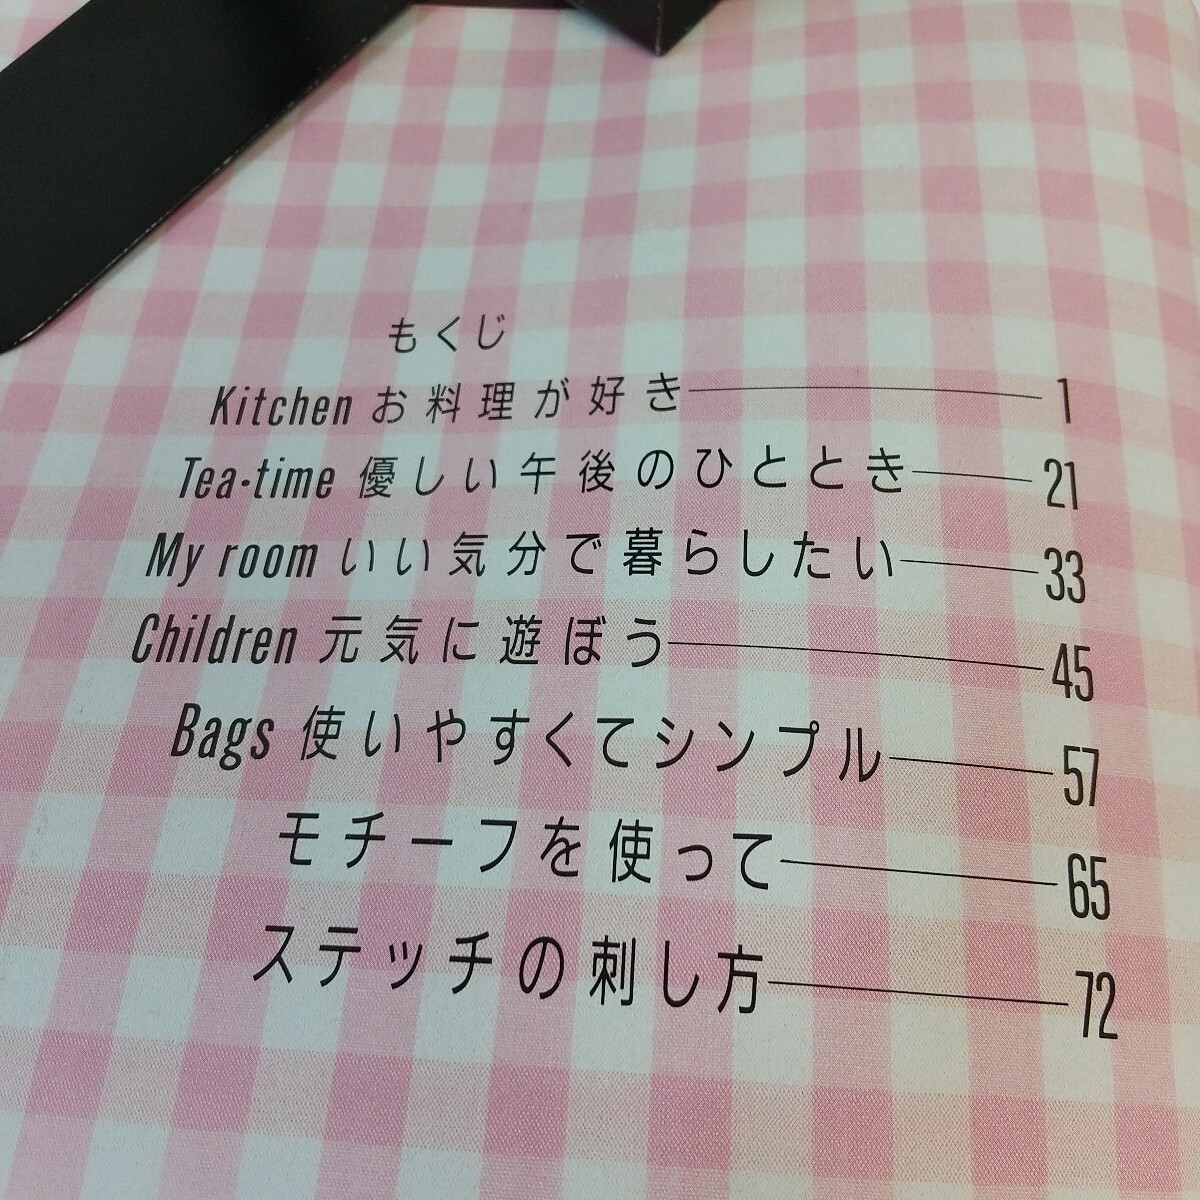 もくじ
Kitchen お料理が好き 1
Tea・time 優しい午後のひととき 21
My room いい気分で暮らしたい 33
Children 元気に遊ぼう 45
Bags 使いやすくてシンプル 57
モチーフを使って 65
ステッチの刺し方 72